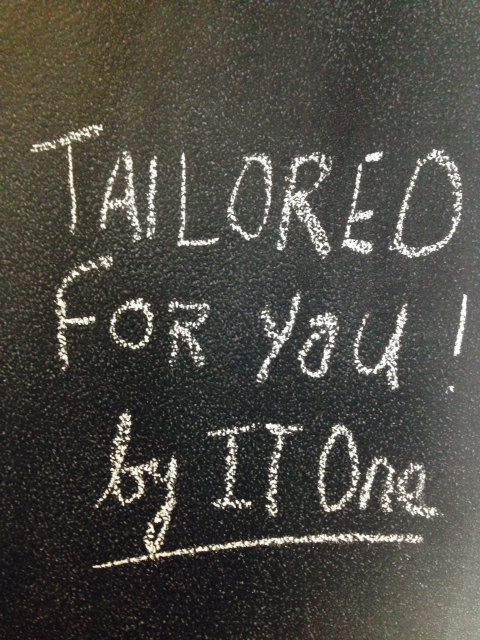 TAILORED
FOR YOU!
by IT One